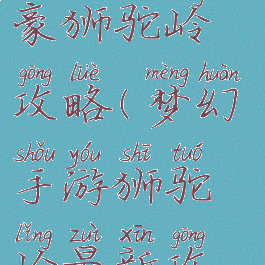 豪狮驼岭
gōng lüè mèng huàn
攻略(梦幻
shǒu yóu shī tuó
手游狮驼
lǐng zuì xīn gōng
岭最新攻